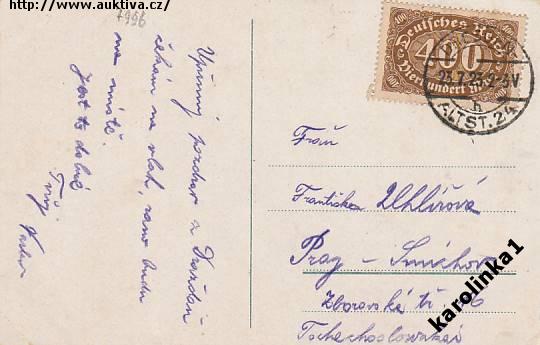 http://www.auktiva.cz/
7956
Upřímný pozdrav z Drážďan
čekám na vlak, ráno budu
na místě.
Jest to dobré
Tvůj
Deutsches Reich
400
400
400
Vierhundert Mark
23.7.23.
ALTST. 24
Frau
Františka Uhlířová
Prag - Smíchov
Zborovská tř.
Tschechoslowakei
karolinka1